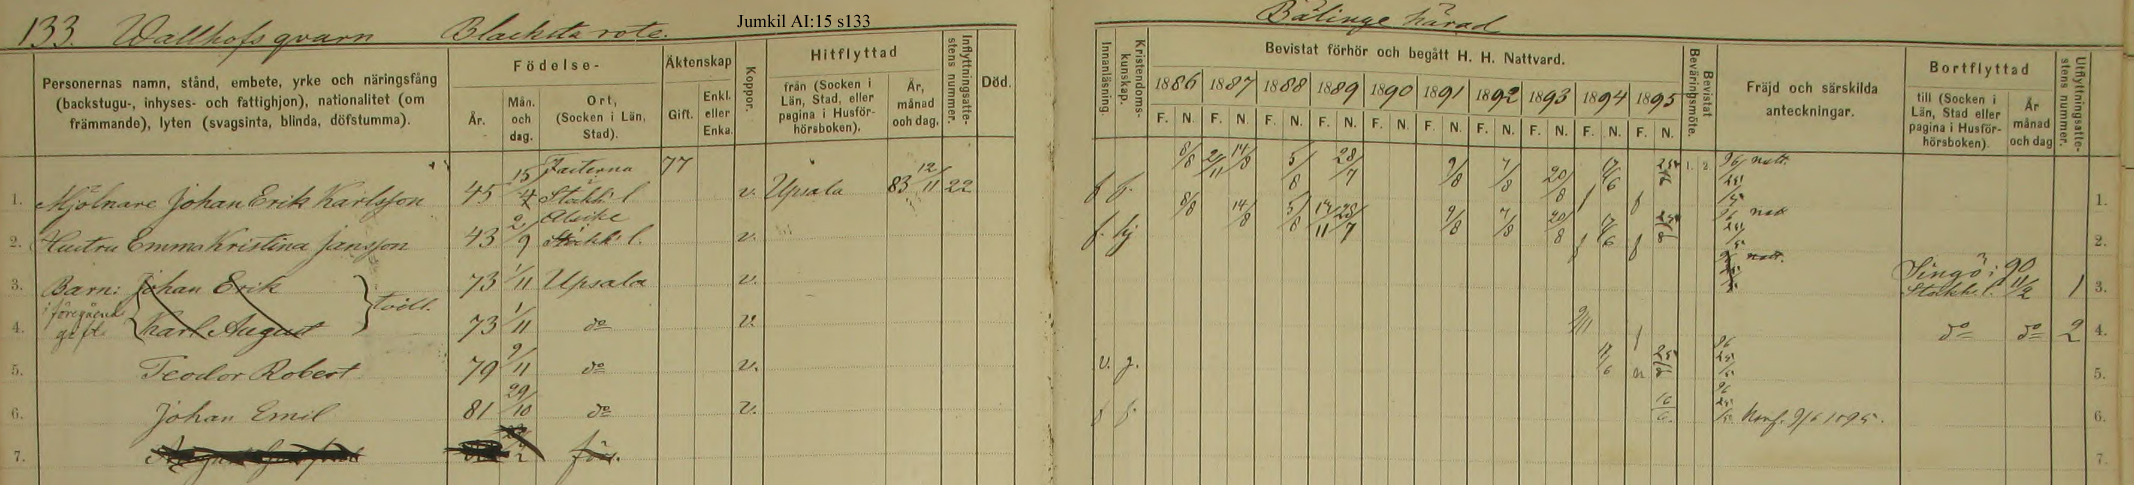 Jumkil AI:15 s133
133. Wallhofs qvarn Blacksta rote. Bälinge härad
Personernas namn, stånd, embete, yrke och näringsfång
(backstugu-, inhyses- och fattighjon), nationalitet (om
främmande), lyten (svagsinta, blinda, döfstumma).
Födelse-
År.
Mån.
och
dag.
Ort,
(Socken i Län,
Stad).
Äktenskap
Gift.
Enkl.
eller
Enka.
Koppor.
Hitflyttad
från (Socken i
Län, Stad, eller
pagina i Husför-
hörsboken).
År,
månad
och dag.
Inflyttningsatte-
stens nummer.
Död.
Innanläsning.
Kristendoms-
kunskap.
Bevistat förhör och begått H. H. Nattvard.
1886 1887 1888 1889 1890 1891 1892 1893 1894 1895
F. N. F. N. F. N. F. N. F. N. F. N. F. N. F. N. F. N. F. N.
Bevistat
Beväringsmöte.
Fräjd och särskilda
anteckningar.
Bortflyttad
till (Socken i
Län, Stad eller
pagina i Husför-
hörsboken).
År
månad
och dag
Utflyttningsatte-
stens nummer.
1. Mjölnare Johan Erik Karlsson 45 15/4 Stockh. l. 77 v. Upsala 83 12/11 22 8/8 2/11 14/8 5/8 28/7 9/8 7/8 20/8 17/6 1. 2 natt. 1.
2. Hustru Emma Kristina Jansson 43 2/9 Stockh. l. v. 8/8 14/8 5/8 28/7 9/8 7/8 20/8 17/6 2.
3. Barn: Johan Erik 73 1/11 Upsala v. natt. Singö i Stockh. l. 90 11/2 1 3.
i föregående gifte
4. Karl August tvill. 73 1/11 do v. do do 2 4.
5. Teodor Robert 79 9/11 do v. 17/6 5.
6. Johan Emil 81 29/10 do v. Konf. 9/6 1895. 6.
7. föds. 7.